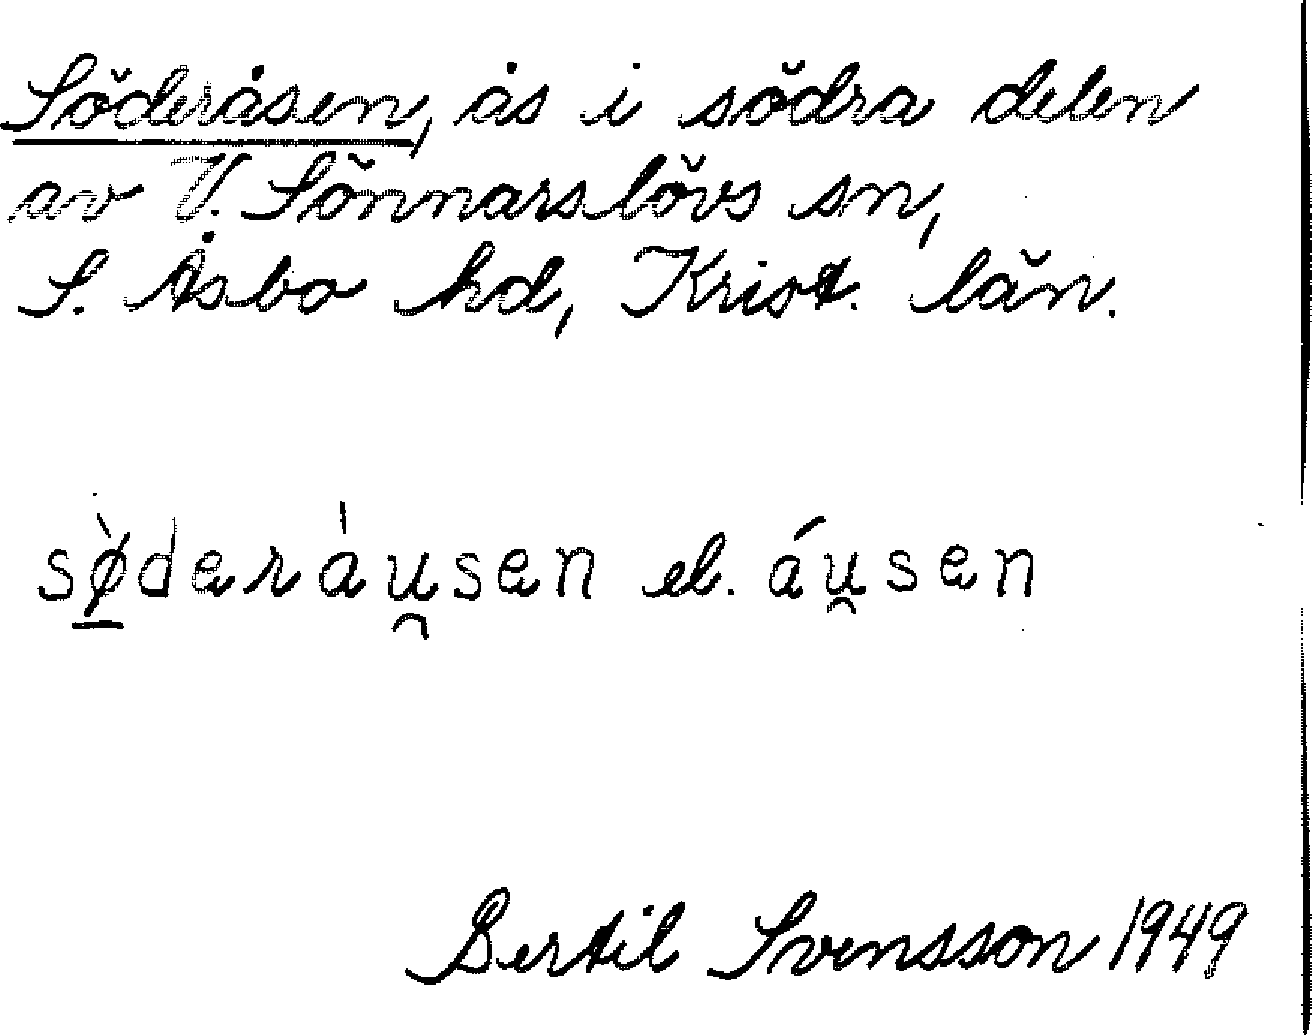 Söderåsen, ås i södra delen
av V. Sönnarslövs sn,
S. Åsbo hd, Krist. län.
sø̱̀deràu̯sen el. áu̯sen
Bertil Svensson 1949